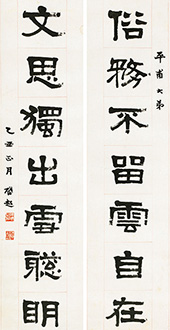 平甫大弟
俗務不留雲自在
文思獨出雪聰明
乙丑正月 啟超